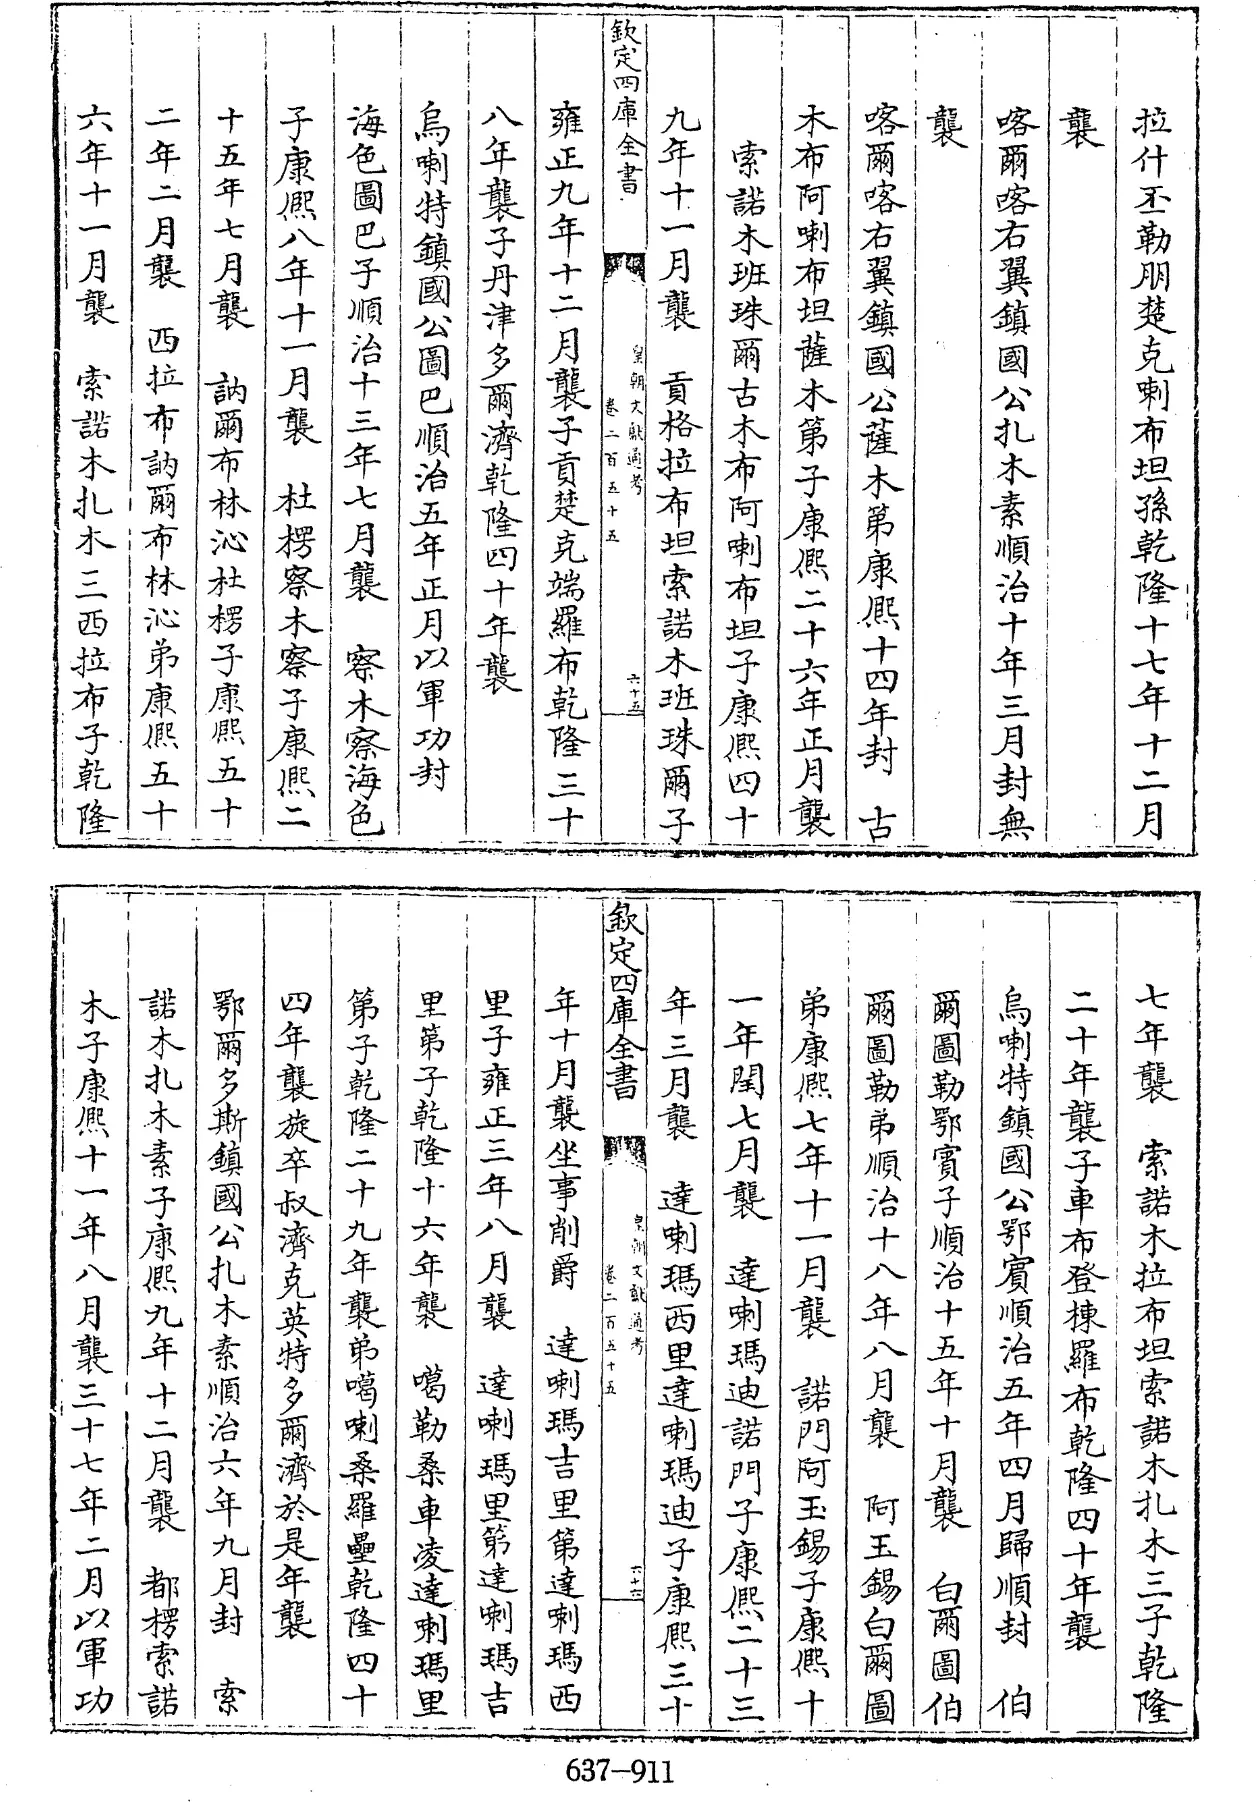 拉什丕勒朋楚克喇布坦孫乾隆十七年十二月
襲
喀爾喀右翼鎮國公扎木素順治十年三月封無
襲
喀爾喀右翼鎮國公薩木第康熙十四年封　古
木布阿喇布坦薩木第子康熙二十六年正月襲
索諾木班珠爾古木布阿喇布坦子康熙四十
九年十一月襲　貢格拉布坦索諾木班珠爾子
欽定四庫全書
皇朝文獻通考
卷二百五十五
六十五
雍正九年十二月襲子貢楚克端羅布乾隆三十
八年襲子丹津多爾濟乾隆四十年襲
烏喇特鎮國公圖巴順治五年正月以軍功封
海色圖巴子順治十三年七月襲　察木察海色
子康熙八年十一月襲　杜楞察木察子康熙二
十五年七月襲　訥爾布林沁杜楞子康熙五十
二年二月襲　西拉布訥爾布林沁弟康熙五十
六年十一月襲　索諾木扎木三西拉布子乾隆
七年襲　索諾木拉布坦索諾木扎木三子乾隆
二十年襲子車布登棟羅布乾隆四十年襲
烏喇特鎮國公鄂賓順治五年四月歸順封　伯
爾圖勒鄂賓子順治十五年十月襲　白爾圖伯
爾圖勒弟順治十八年八月襲　阿玉錫白爾圖
弟康熙七年十一月襲　諾門阿玉錫子康熙十
一年閏七月襲　達喇瑪迪諾門子康熙二十三
年三月襲　達喇瑪西里達喇瑪迪子康熙三十
欽定四庫全書
皇朝文獻通考
卷二百五十五
六十六
年十月襲坐事削爵　達喇瑪吉里第達喇瑪西
里子雍正三年八月襲　達喇瑪里第達喇瑪吉
里第子乾隆十六年襲　噶勒桑車凌達喇瑪里
第子乾隆二十九年襲弟噶喇桑羅壘乾隆四十
四年襲旋卒叔濟克英特多爾濟於是年襲
鄂爾多斯鎮國公扎木素順治六年九月封　索
諾木扎木素子康熙九年十二月襲　都楞索諾
木子康熙十一年八月襲三十七年二月以軍功
637-911